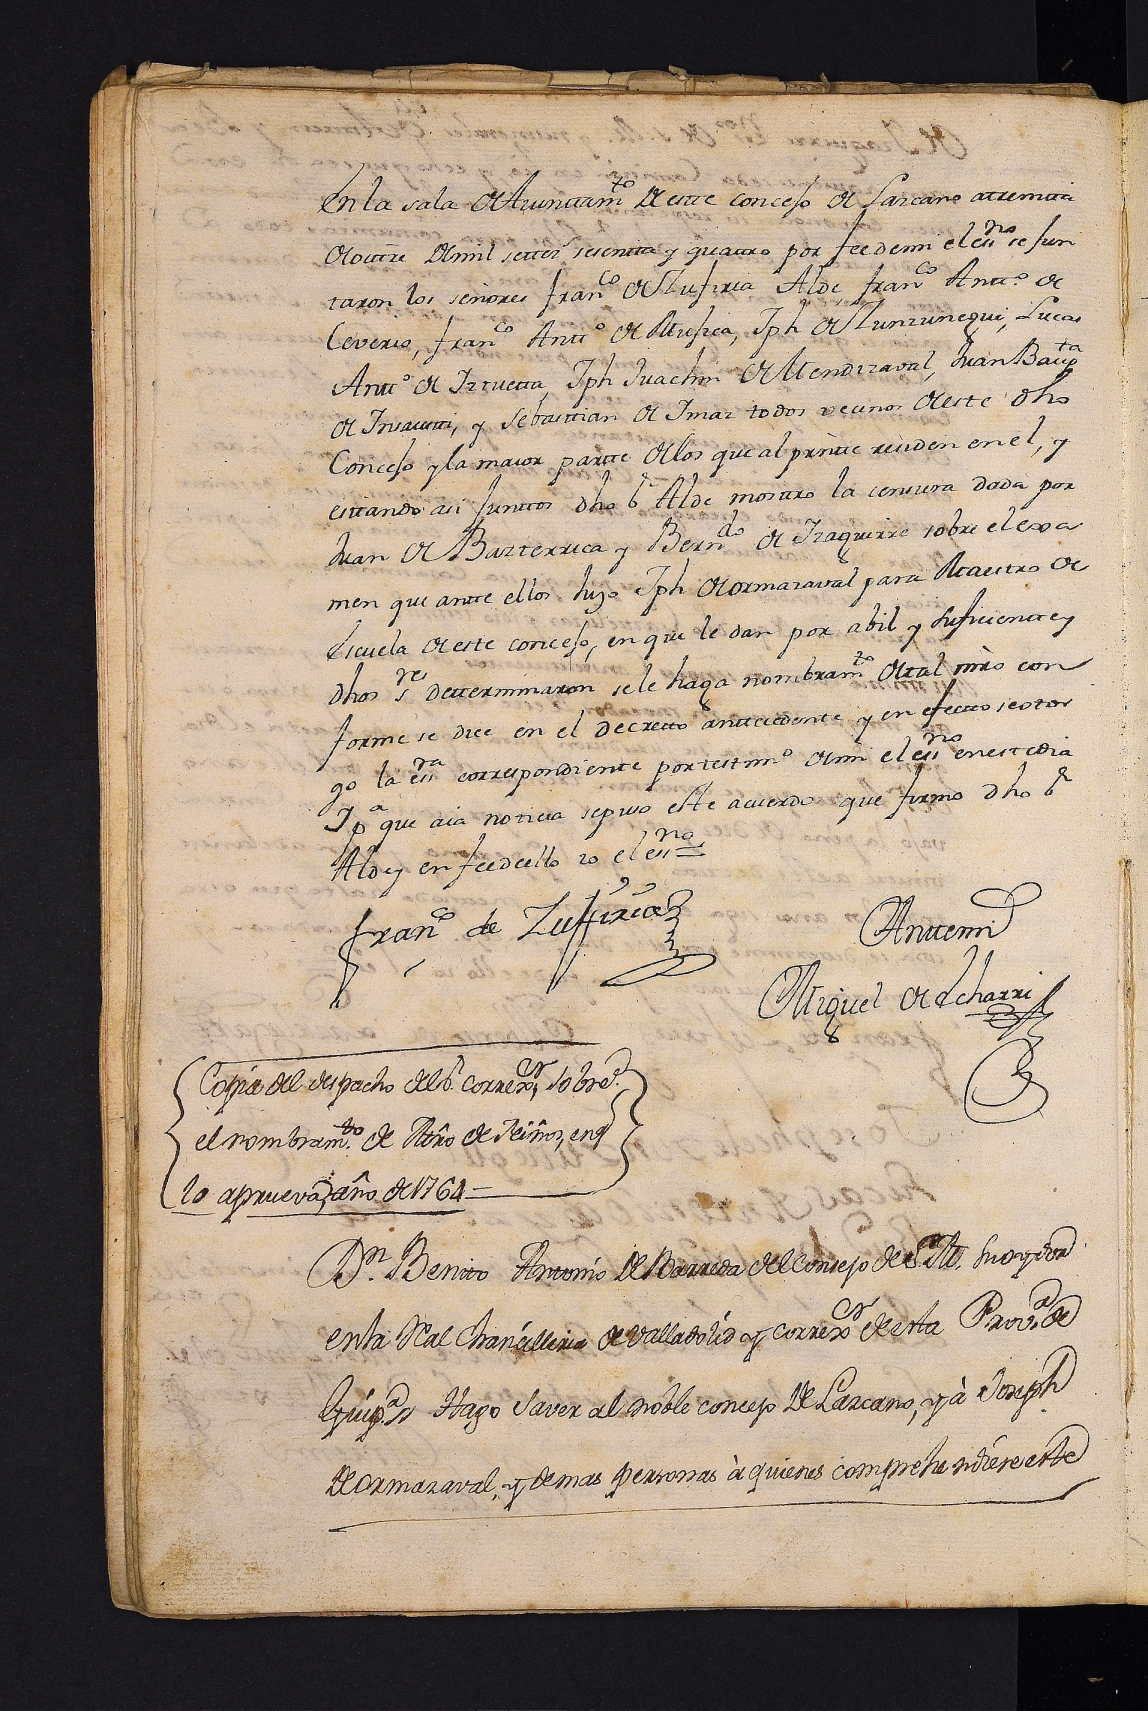 En la sala de Aiunttam.to de estte concejo de Lazcano a ttreintta
de octtre de mil settez.s sesentta y quattro por fee de mi el ess.no se jun
taron los señores Fran.co de Zufiria Alde, Fran.co Antt.o de
Ceverio, Fran.co Antt.o de Mujica, Jph de Zunzunegui, Lucas
Antt.o de Iztuetta, Jph Juachin de Mendizaval, Juan Baup.ta
de Insausti, y Sebasttian de Imaz todos vecinos de este dho
Concejo y la maior partte de los que al presntte residen en el, y
esttando asi junttos dho S.r Alde mosttro la censura dada por
Juan de Bazterrica y Bern.do de Izaguirre sobre el exa
men que antte ellos hizo Jph de ormazaval para Maestro de
Escuela de este concejo, en que le dan por abil y suficiente y
dhos s.res detterminaron se le haga nombram.to de tal mro con
forme se dice en el decretto anttecedente y en efectto se ottor
go la ess.ra correspondiente por testim.o de mi el ess.no en este dia
Y p.a que aia noticia se puso este acuerdo que firmo dho S.r
Alde y en fee de ello yo el ess.no
Fran.co de Zufiria
Antte mi
Miguel de Echarri
Copia del despacho del S.r correx.or, sobre
el nombram.to de Mrô de Niños, en q
lo aprueva, año de 1764
D.n Benito Antonio de Barreda del Consejo de S. M. su oydor
en la Real Chancilleria de Valladolid y correx.or de esta Prov.a de
Guip.a Hago saver al noble concejo de Lazcano, y à Joseph
de ormazaval, y demas personas à quienes comprehendiere este